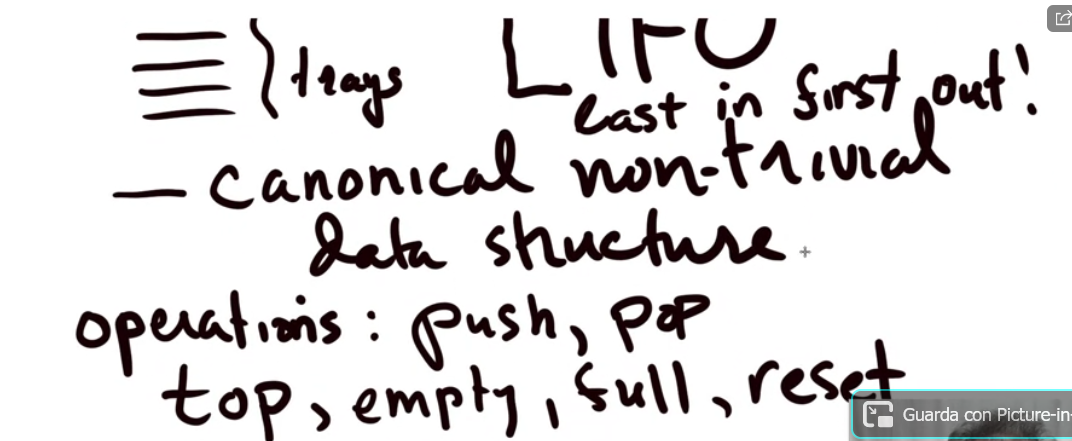 trays LIFO
last in first out!
— canonical non-trivial
data structure
operations: push, pop
top, empty, full, reset
Guarda con Picture-in-